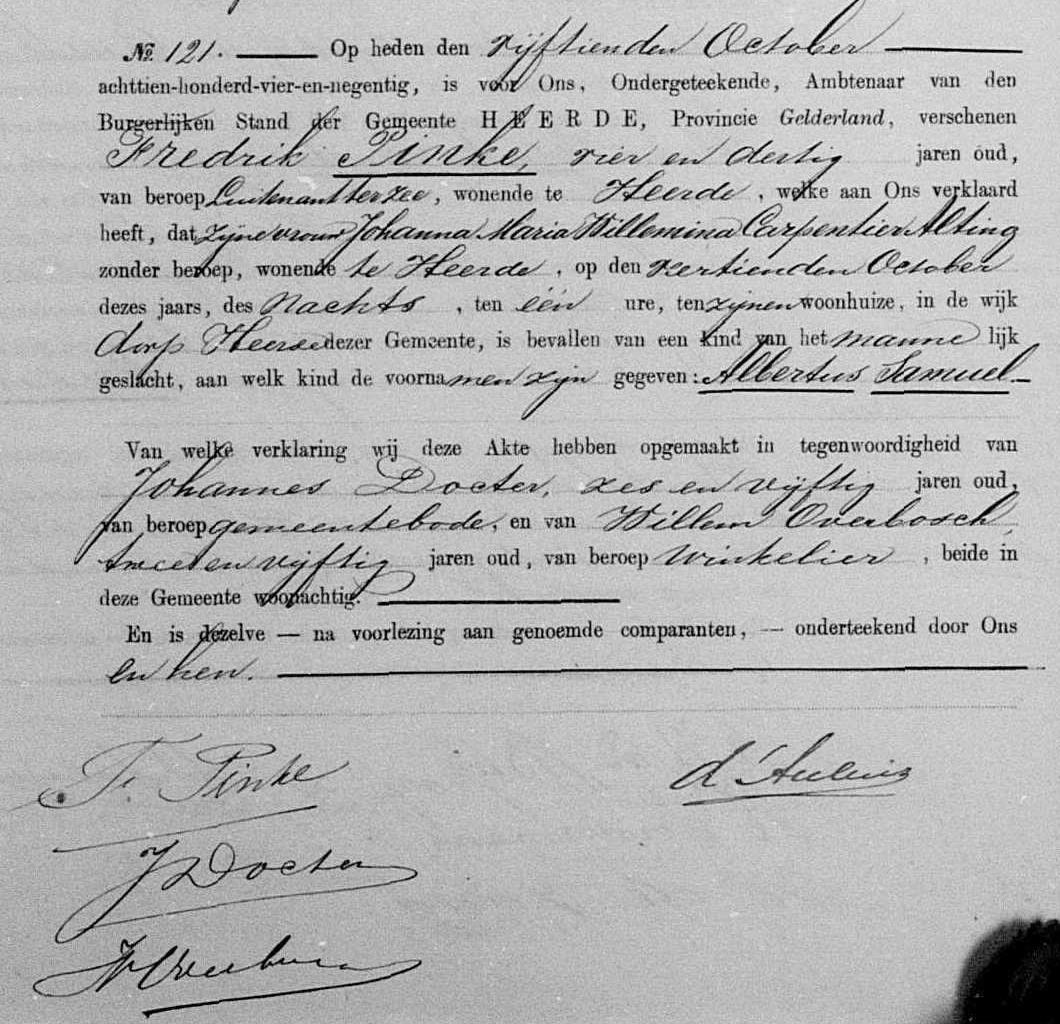 № 121. Op heden den vijftienden October
achttien-honderd-vier-en-negentig, is voor Ons, Ondergeteekende, Ambtenaar van den
Burgerlijken Stand der Gemeente HEERDE, Provincie Gelderland, verschenen
Fredrik Pinke, vier en dertig jaren oud,
van beroep Luitenant ter zee, wonende te Heerde, welke aan Ons verklaard
heeft, dat zijne vrouw Johanna Maria Willemina Carpentier Alting
zonder beroep, wonende te Heerde, op den veertienden October
dezes jaars, des Nachts, ten één ure, ten zijnen woonhuize, in de wijk
dorp Heerde dezer Gemeente, is bevallen van een kind van het mannelijk
geslacht, aan welk kind de voornamen zijn gegeven: Albertus Samuel
Van welke verklaring wij deze Akte hebben opgemaakt in tegenwoordigheid van
Johannes Docter, zes en vijftig jaren oud,
van beroep gemeentebode, en van Willem Overbosch,
twee en vijftig jaren oud, van beroep Winkelier, beide in
deze Gemeente woonachtig.
En is dezelve — na voorlezing aan genoemde comparanten, — onderteekend door Ons
en hen.
Fr. Pinke d'Aulnis
J Docter